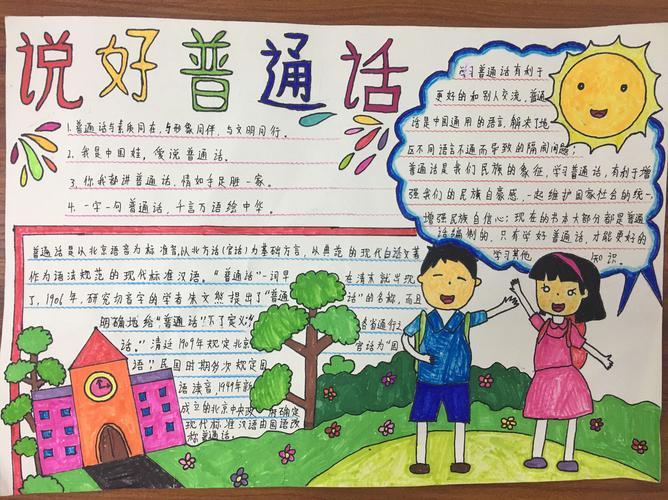 说好普通话
1.普通话与素质同在,与形象同伴,与文明同行。
2.我是中国娃,爱说普通话。
3.你我都讲普通话,情如手足胜一家。
4.一字一句普通话,千言万语绘中华。
学习普通话有利于
更好的和别人交流,普通
话是中国通用的语言,解决了地
区不同语言不通而导致的隔阂问题;
普通话是我们民族的象征,学习普通话,有利于增
强我们的民族自豪感,一起维护国家社会的统一,
增强民族自信心;现在的书本大部分都是普通
话编制的,只有学好普通话,才能更好的
学习其他 知识。
普通话是以北京语音为标准音,以北方话(官话)为基础方言,从典范的现代白话文著
作为语法规范的现代标准汉语。"普通话"一词早 在清末就出现
了,1906年,研究切音字的学者朱文熊提出了"普通 话"的名称,而且
明确地给"普通话"下了定义" 各省通行之
话。"清廷1909年规定北京 官话为"国
语"民国时期多次规定国
语读音1949年新
成立的北京中央政 确定
现代标准汉语由国语改
称普通话。